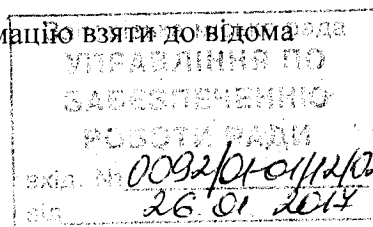 мацію взяти до відома
рада
УПРАВЛІННЯ ПО
ЗАБЕЗПЕЧЕННЮ
РОБОТИ РАДИ
вхід. № 0092/01-01/12/0
від 26.01.2017